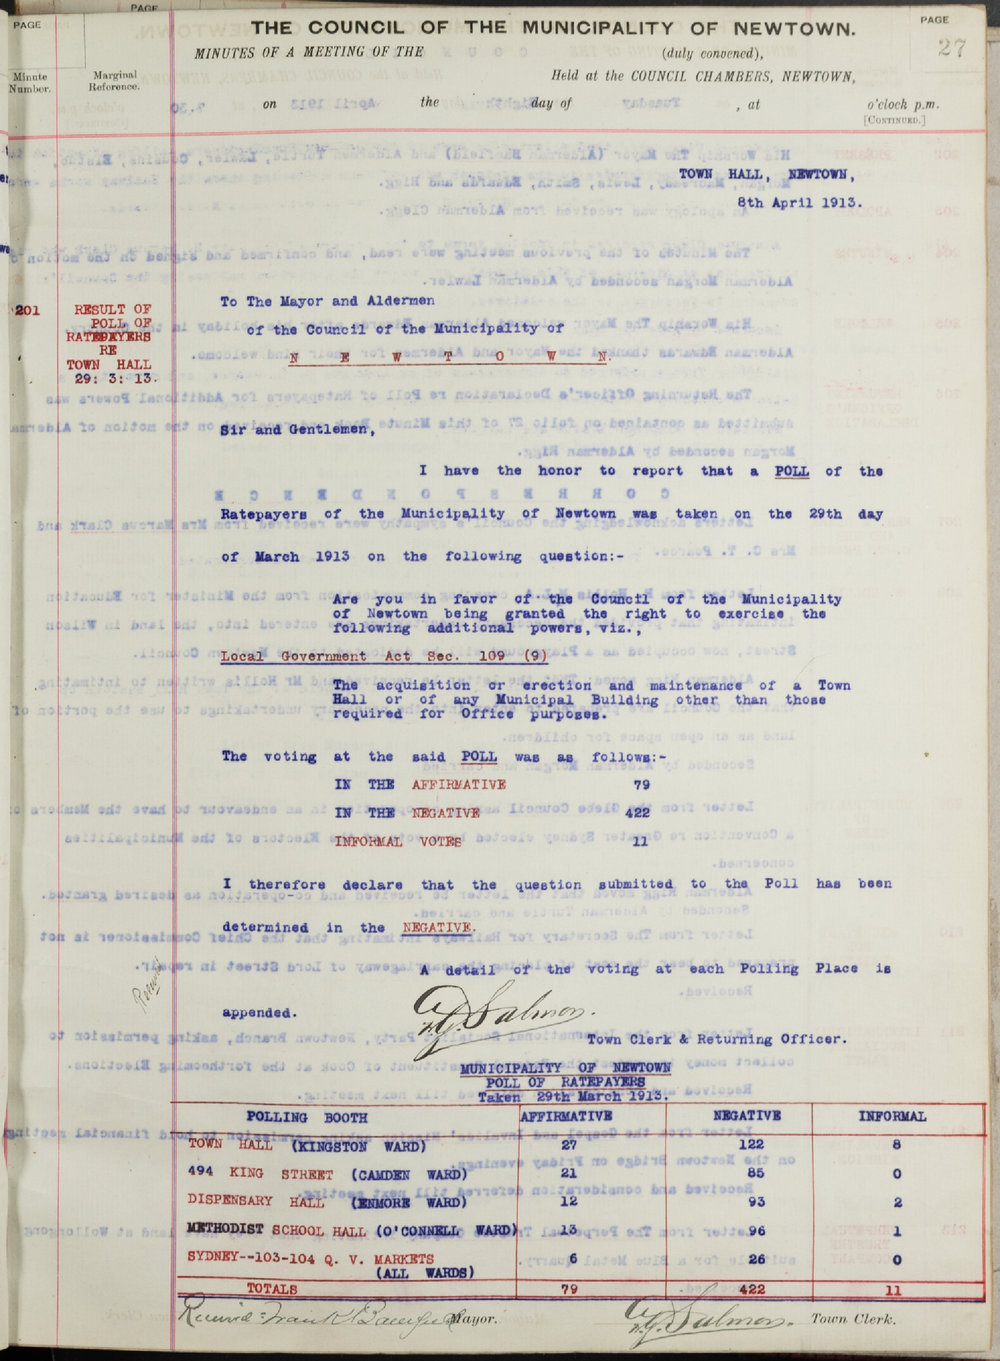 PAGE
PAGE
THE COUNCIL OF THE MUNICIPALITY OF NEWTOWN.
PAGE
27
MINUTES OF A MEETING OF THE (duly convened),
Held at the COUNCIL CHAMBERS, NEWTOWN,
Minute Number.
Marginal Reference.
on the day of , at o'clock p.m.
[CONTINUED.]
TOWN HALL, NEWTOWN,
8th April 1913.
201
RESULT OF
POLL OF
RATEPAYERS
RE
TOWN HALL
29: 3: 13.
To The Mayor and Aldermen
of the Council of the Municipality of
N E W T O W N.
Sir and Gentlemen,
I have the honor to report that a POLL of the
Ratepayers of the Municipality of Newtown was taken on the 29th day
of March 1913 on the following question:-
Are you in favor of the Council of the Municipality
of Newtown being granted the right to exercise the
following additional powers, viz.,
Local Government Act Sec. 109 (9)
The acquisition or erection and maintenance of a Town
Hall or of any Municipal Building other than those
required for Office purposes.
The voting at the said POLL was as follows:-
IN THE AFFIRMATIVE 79
IN THE NEGATIVE 422
INFORMAL VOTES 11
I therefore declare that the question submitted to the Poll has been
determined in the NEGATIVE.
A detail of the voting at each Polling Place is
appended.
Salmon.
Town Clerk & Returning Officer.
MUNICIPALITY OF NEWTOWN
POLL OF RATEPAYERS
Taken 29th March 1913.
POLLING BOOTH AFFIRMATIVE NEGATIVE INFORMAL
TOWN HALL (KINGSTON WARD) 27 122 8
494 KING STREET (CAMDEN WARD) 21 85 0
DISPENSARY HALL (ENMORE WARD) 12 93 2
METHODIST SCHOOL HALL (O'CONNELL WARD) 13 96 1
SYDNEY--103-104 Q. V. MARKETS 6 26 0
(ALL WARDS)
TOTALS 79 422 11
Received: Frank Mayor.
Salmon. Town Clerk.